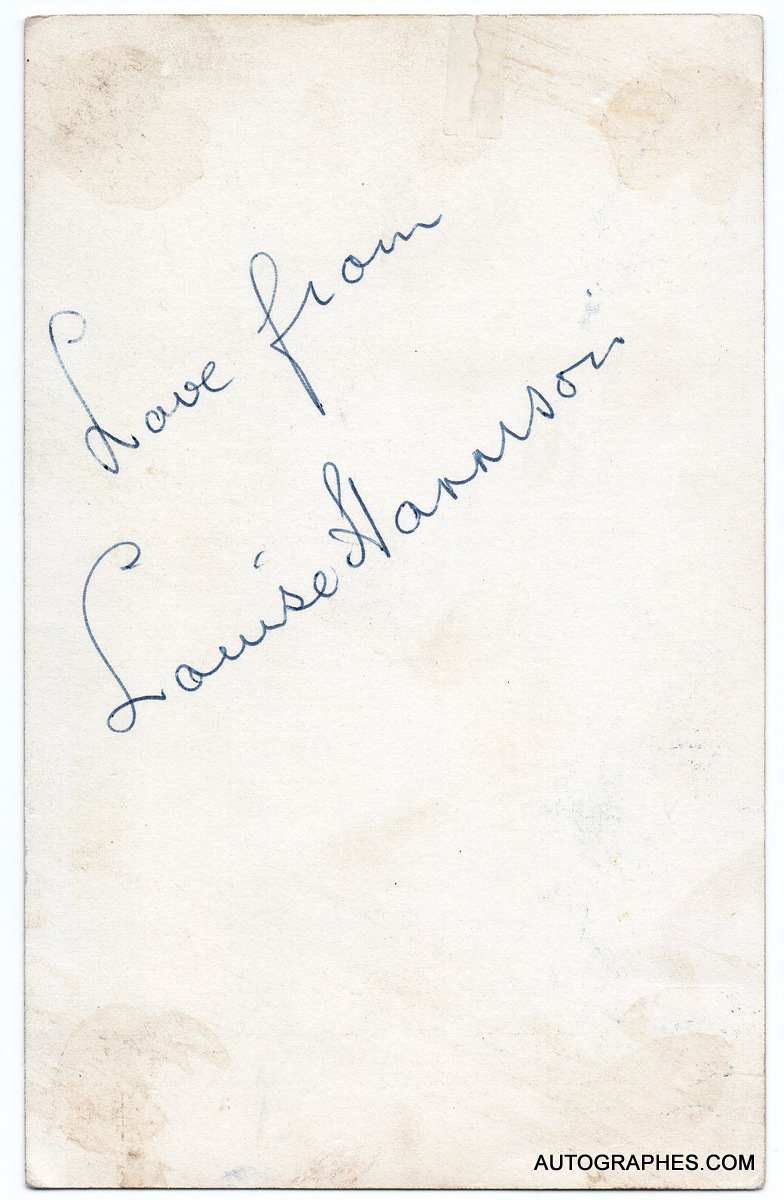 Love from
Louise Harrison
AUTOGRAPHES.COM